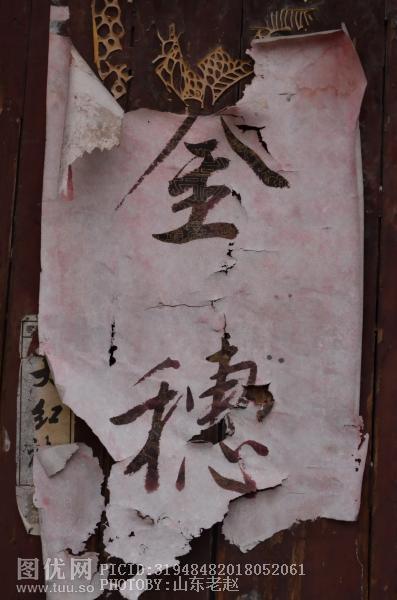 图优
tuu
金
穗
大红
图优网 PICID:31948482018052061
www.tuu.so PHOTOBY:山东老赵